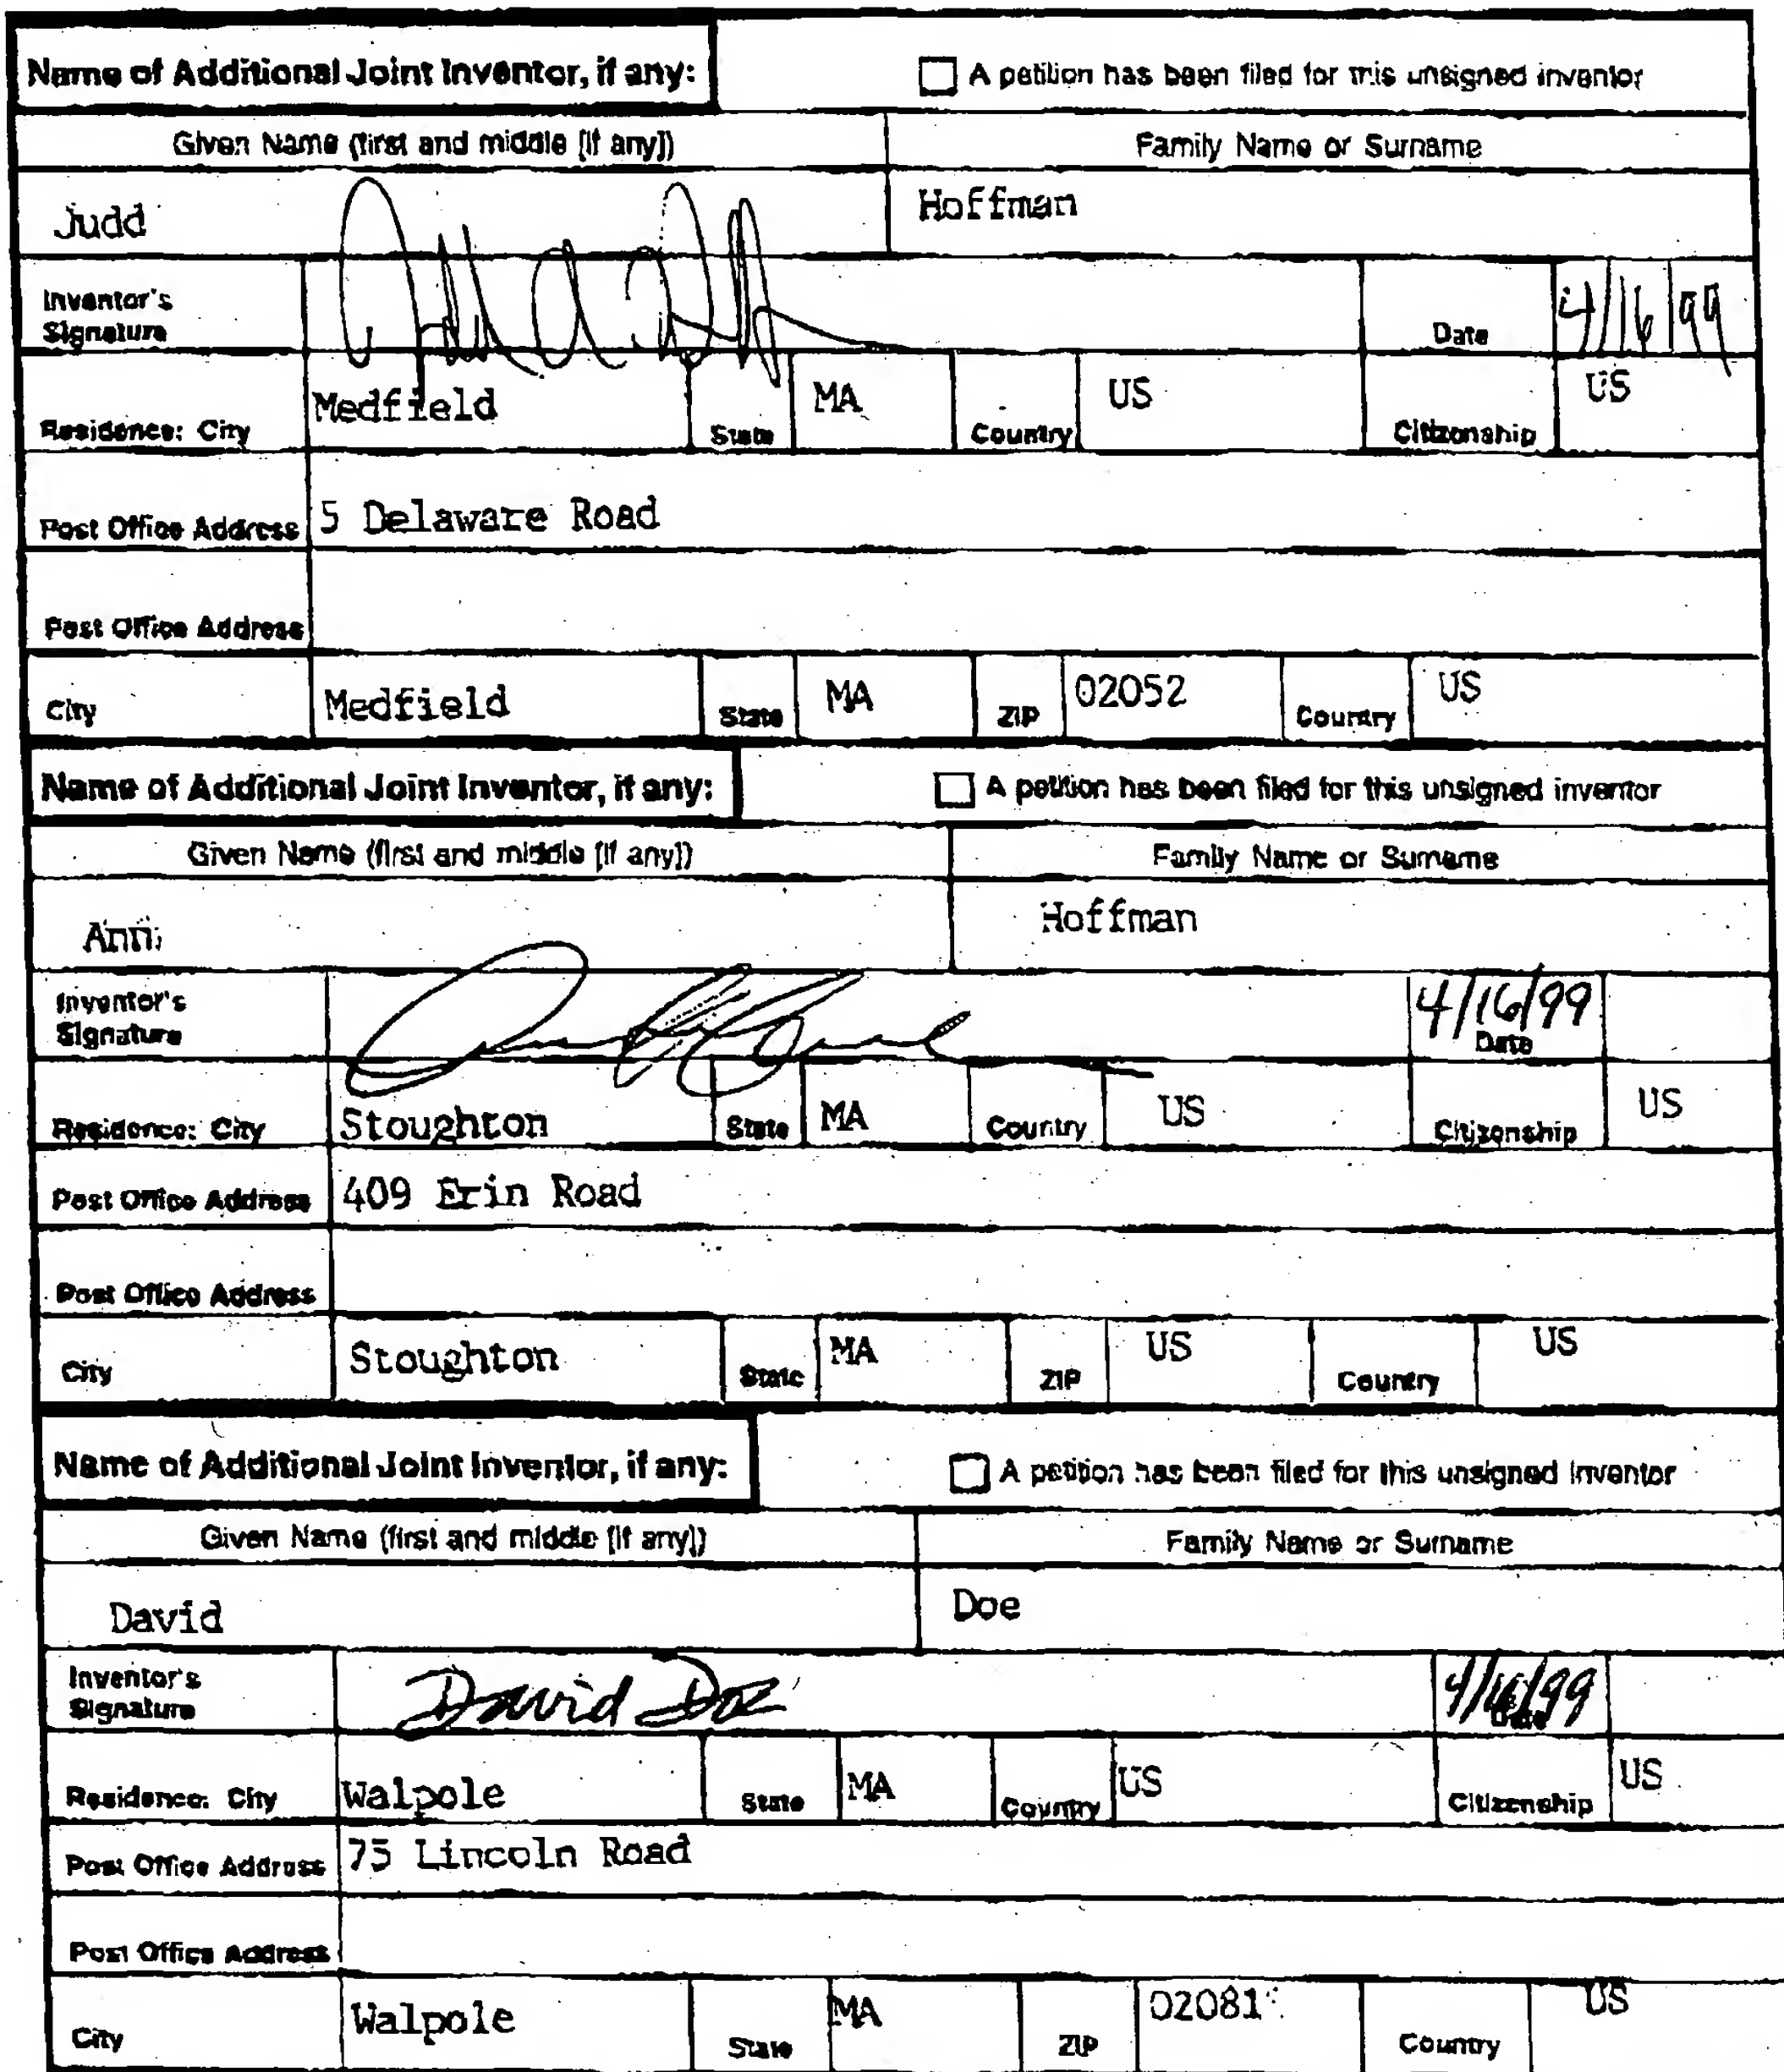 Name of Additional Joint Inventor, if any: ☐ A petition has been filed for this unsigned inventor
Given Name (first and middle [if any]) Family Name or Surname
Judd Hoffman
Inventor's
Signature Date 4/16/99
Residence: City Medfield State MA Country US Citizenship US
Post Office Address 5 Delaware Road
Post Office Address
City Medfield State MA ZIP 02052 Country US
Name of Additional Joint Inventor, if any: ☐ A petition has been filed for this unsigned inventor
Given Name (first and middle [if any]) Family Name or Surname
Ann Hoffman
Inventor's
Signature Ann Hoffman 4/16/99 Date
Residence: City Stoughton State MA Country US Citizenship US
Post Office Address 409 Erin Road
Post Office Address
City Stoughton State MA ZIP US Country US
Name of Additional Joint Inventor, if any: ☐ A petition has been filed for this unsigned inventor
Given Name (first and middle [if any]) Family Name or Surname
David Doe
Inventor's
Signature David Doe 4/16/99 Date
Residence: City Walpole State MA Country US Citizenship US
Post Office Address 75 Lincoln Road
Post Office Address
City Walpole State MA ZIP 02081 Country US